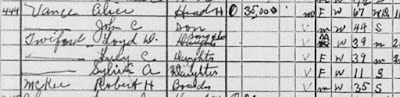 444 Vance Alice Head H O 35,000 F W 67 Wd
John C Son V M W 49 S
Twiford Lloyd W. V M W 39 M
Ruby C Daughter V F W 39 M
Sylvia A Daughter V F W 11 S
McKee Robert H Boarder V M W 35 S